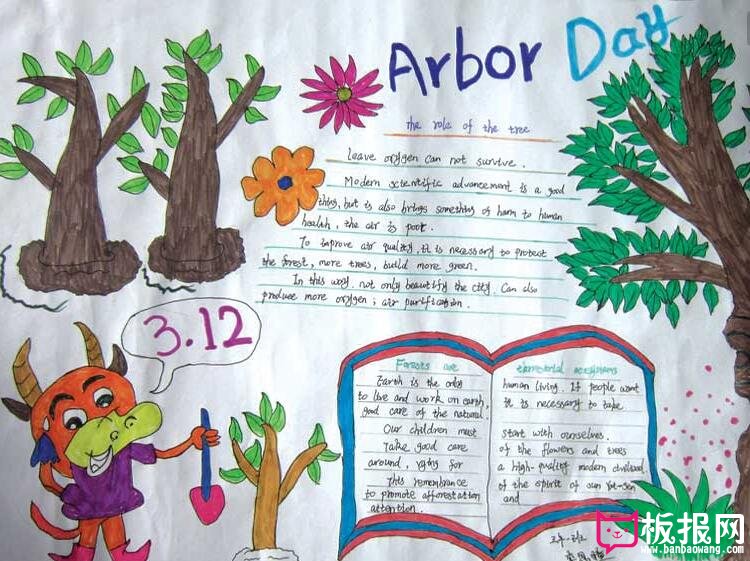 Arbor Day
The role of the tree
Leave oxygen can not survive.
Modern scientific advancement is a good
thing, but is also brings something of harm to human
health, the air is poor.
To improve air quality, it is necessary to protect
the forest, more trees, build more green.
In this way, not only beautify the city. Can also
produce more oxygen; air purification.
3.12
Forests are
Earth is the only
to live and work on earth,
good care of the natural.
Our children must
Take good care
around, vying for
This remembrance
to promote afforestation
attention.
terrestrial ecosystems
human living. If people want
It is necessary to take
start with ourselves.
of the flowers and trees
a high-quality modern civilized.
of the spirit of Sun Yat-Sen
and
板报网
www.banbaowang.com